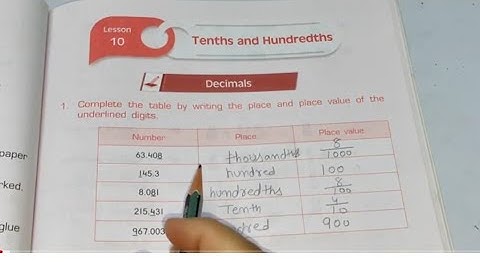 Lesson
10
Tenths and Hundredths
Decimals
1. Complete the table by writing the place and place value of the
underlined digits.
Number Place Place value
63.408 thousandths 8/1000
145.3 hundred 100
8.081 hundredths 8/100
215.431 Tenth 4/10
967.003 900
paper
ked.
glue